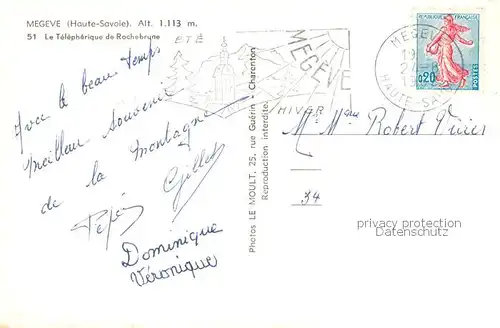 MEGEVE (Haute-Savoie). Alt. 1.113 m.
51 Le Téléphérique de Rochebrune
ETÉ
MEGÈVE
HIVER
MEGEVE
HAUTE-SA
REPUBLIQUE FRANÇAISE
0,20
POSTES
Avec le beau temps
Meilleur souvenir
de la montagne
Pépé Gillet
Dominique
Véronique
Photos LE MOULT, 25, rue Guérin - Charenton
Reproduction interdite.
M. Mme Robert
34
privacy protection
Datenschutz